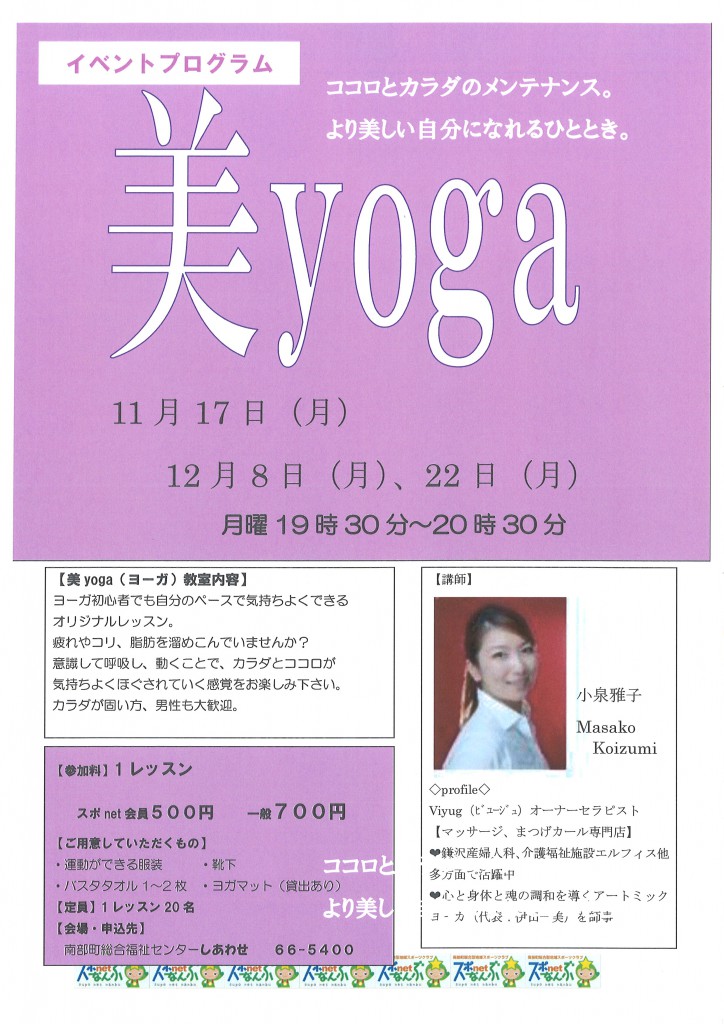 イベントプログラム
ココロとカラダのメンテナンス。
より美しい自分になれるひととき。
美yoga
11月17日（月）
12月8日（月）、22日（月）
月曜19時30分～20時30分
【美yoga（ヨーガ）教室内容】
ヨーガ初心者でも自分のペースで気持ちよくできる
オリジナルレッスン。
疲れやコリ、脂肪を溜めこんでいませんか？
意識して呼吸し、動くことで、カラダとココロが
気持ちよくほぐされていく感覚をお楽しみ下さい。
カラダが固い方、男性も大歓迎。
【講師】
小泉雅子
Masako
Koizumi
◇profile◇
Viyug（ﾋﾞｭｰｼﾞｭ）オーナーセラピスト
【マッサージ、まつげカール専門店】
❤鎌沢産婦人科、介護福祉施設エルフィス他
多方面で活躍中
❤心と身体と魂の調和を導くアートミック
ヨーガ（代表：伊
【参加料】1レッスン
スポnet会員500円　一般700円
【ご用意していただくもの】
・運動ができる服装　・靴下
・バスタタオル1～2枚　・ヨガマット（貸出あり）
【定員】1レッスン20名
【会場・申込先】
南部町総合福祉センターしあわせ　66-5400
ココロと
より美し
スポnetなんぶ